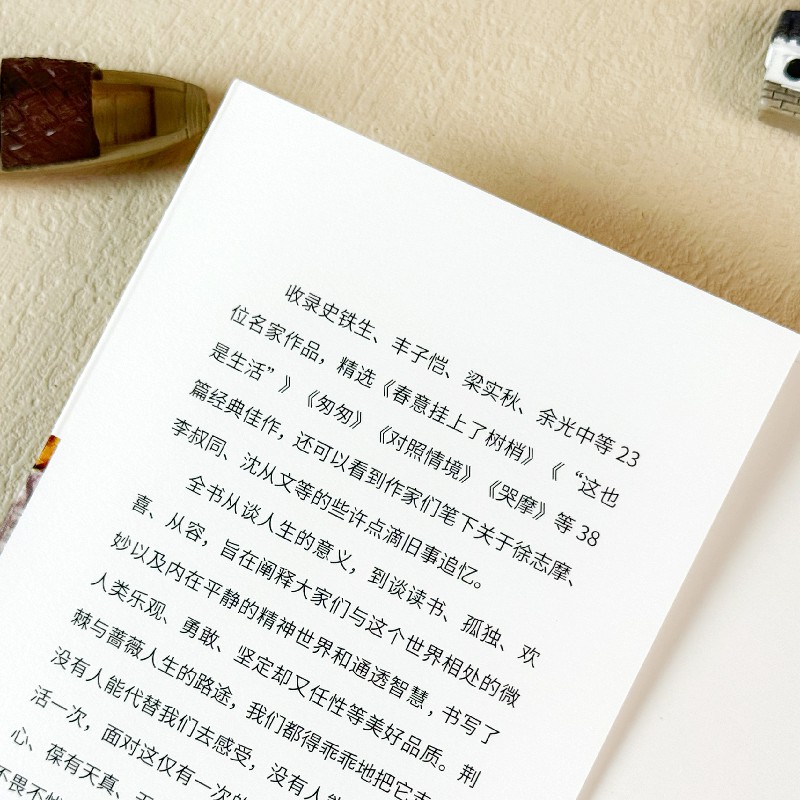 收录史铁生、丰子恺、梁实秋、余光中等 23
位名家作品，精选《春意挂上了树梢》《“这也
是生活”》《匆匆》《对照情境》《哭摩》等 38
篇经典佳作，还可以看到作家们笔下关于徐志摩、
李叔同、沈从文等的些许点滴旧事追忆。
全书从谈人生的意义，到谈读书、孤独、欢
喜、从容，旨在阐释大家们与这个世界相处的微
妙以及内在平静的精神世界和通透智慧，书写了
人类乐观、勇敢、坚定却又任性等美好品质。荆
棘与蔷薇人生的路途，我们都得乖乖地把它走
没有人能代替我们去感受，没有人能
活一次，面对这仅有一次的
心、葆有天真、
不畏不